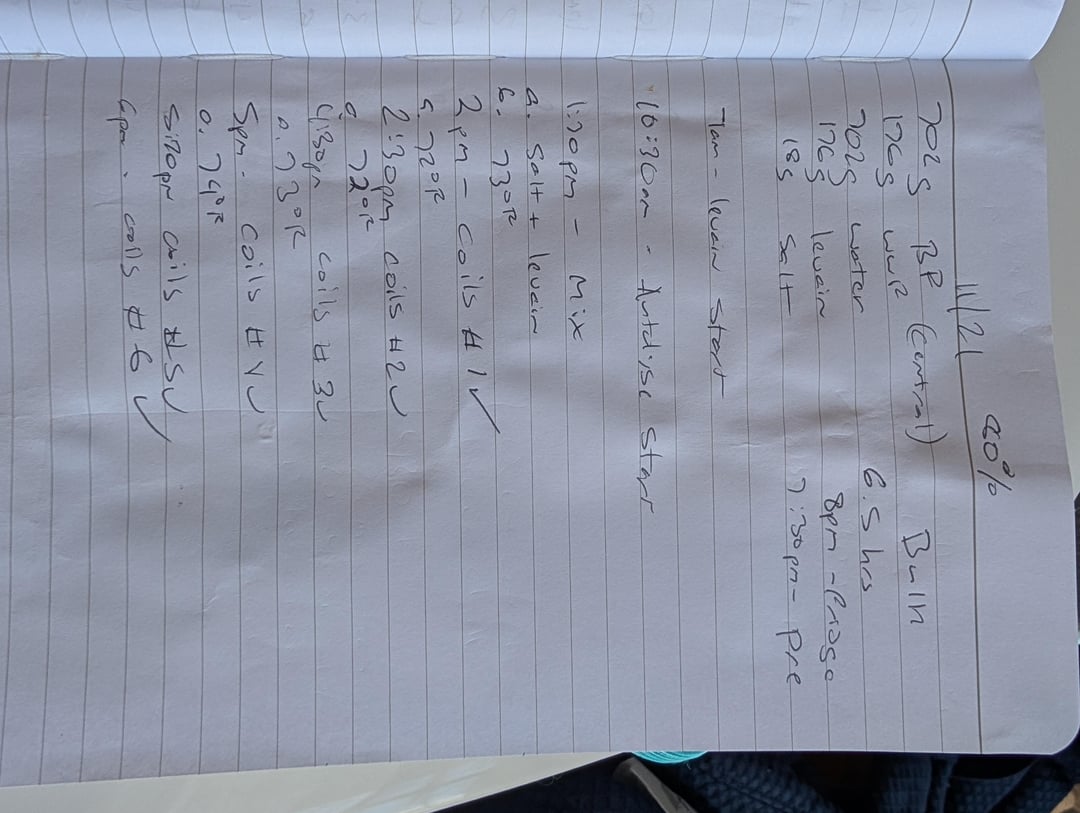 80%
11/21
702g BF (Central)
176g wwF
702g water
176g levain
18g salt
Bulk
6.5 hrs
8pm - fridge
7:30pm - Pre
7am - levain start
10:30am - Autolyse start
1:20pm - Mix
a. Salt + levain
b. 73°F
2pm - coils #1 ✓
a. 72°F
2:30pm coils #2 ✓
a. 72°F
4:30pm coils #3 ✓
a. 73°F
5pm - coils #4 ✓
a. 74°F
5:30pm coils #5 ✓
6pm - coils #6 ✓